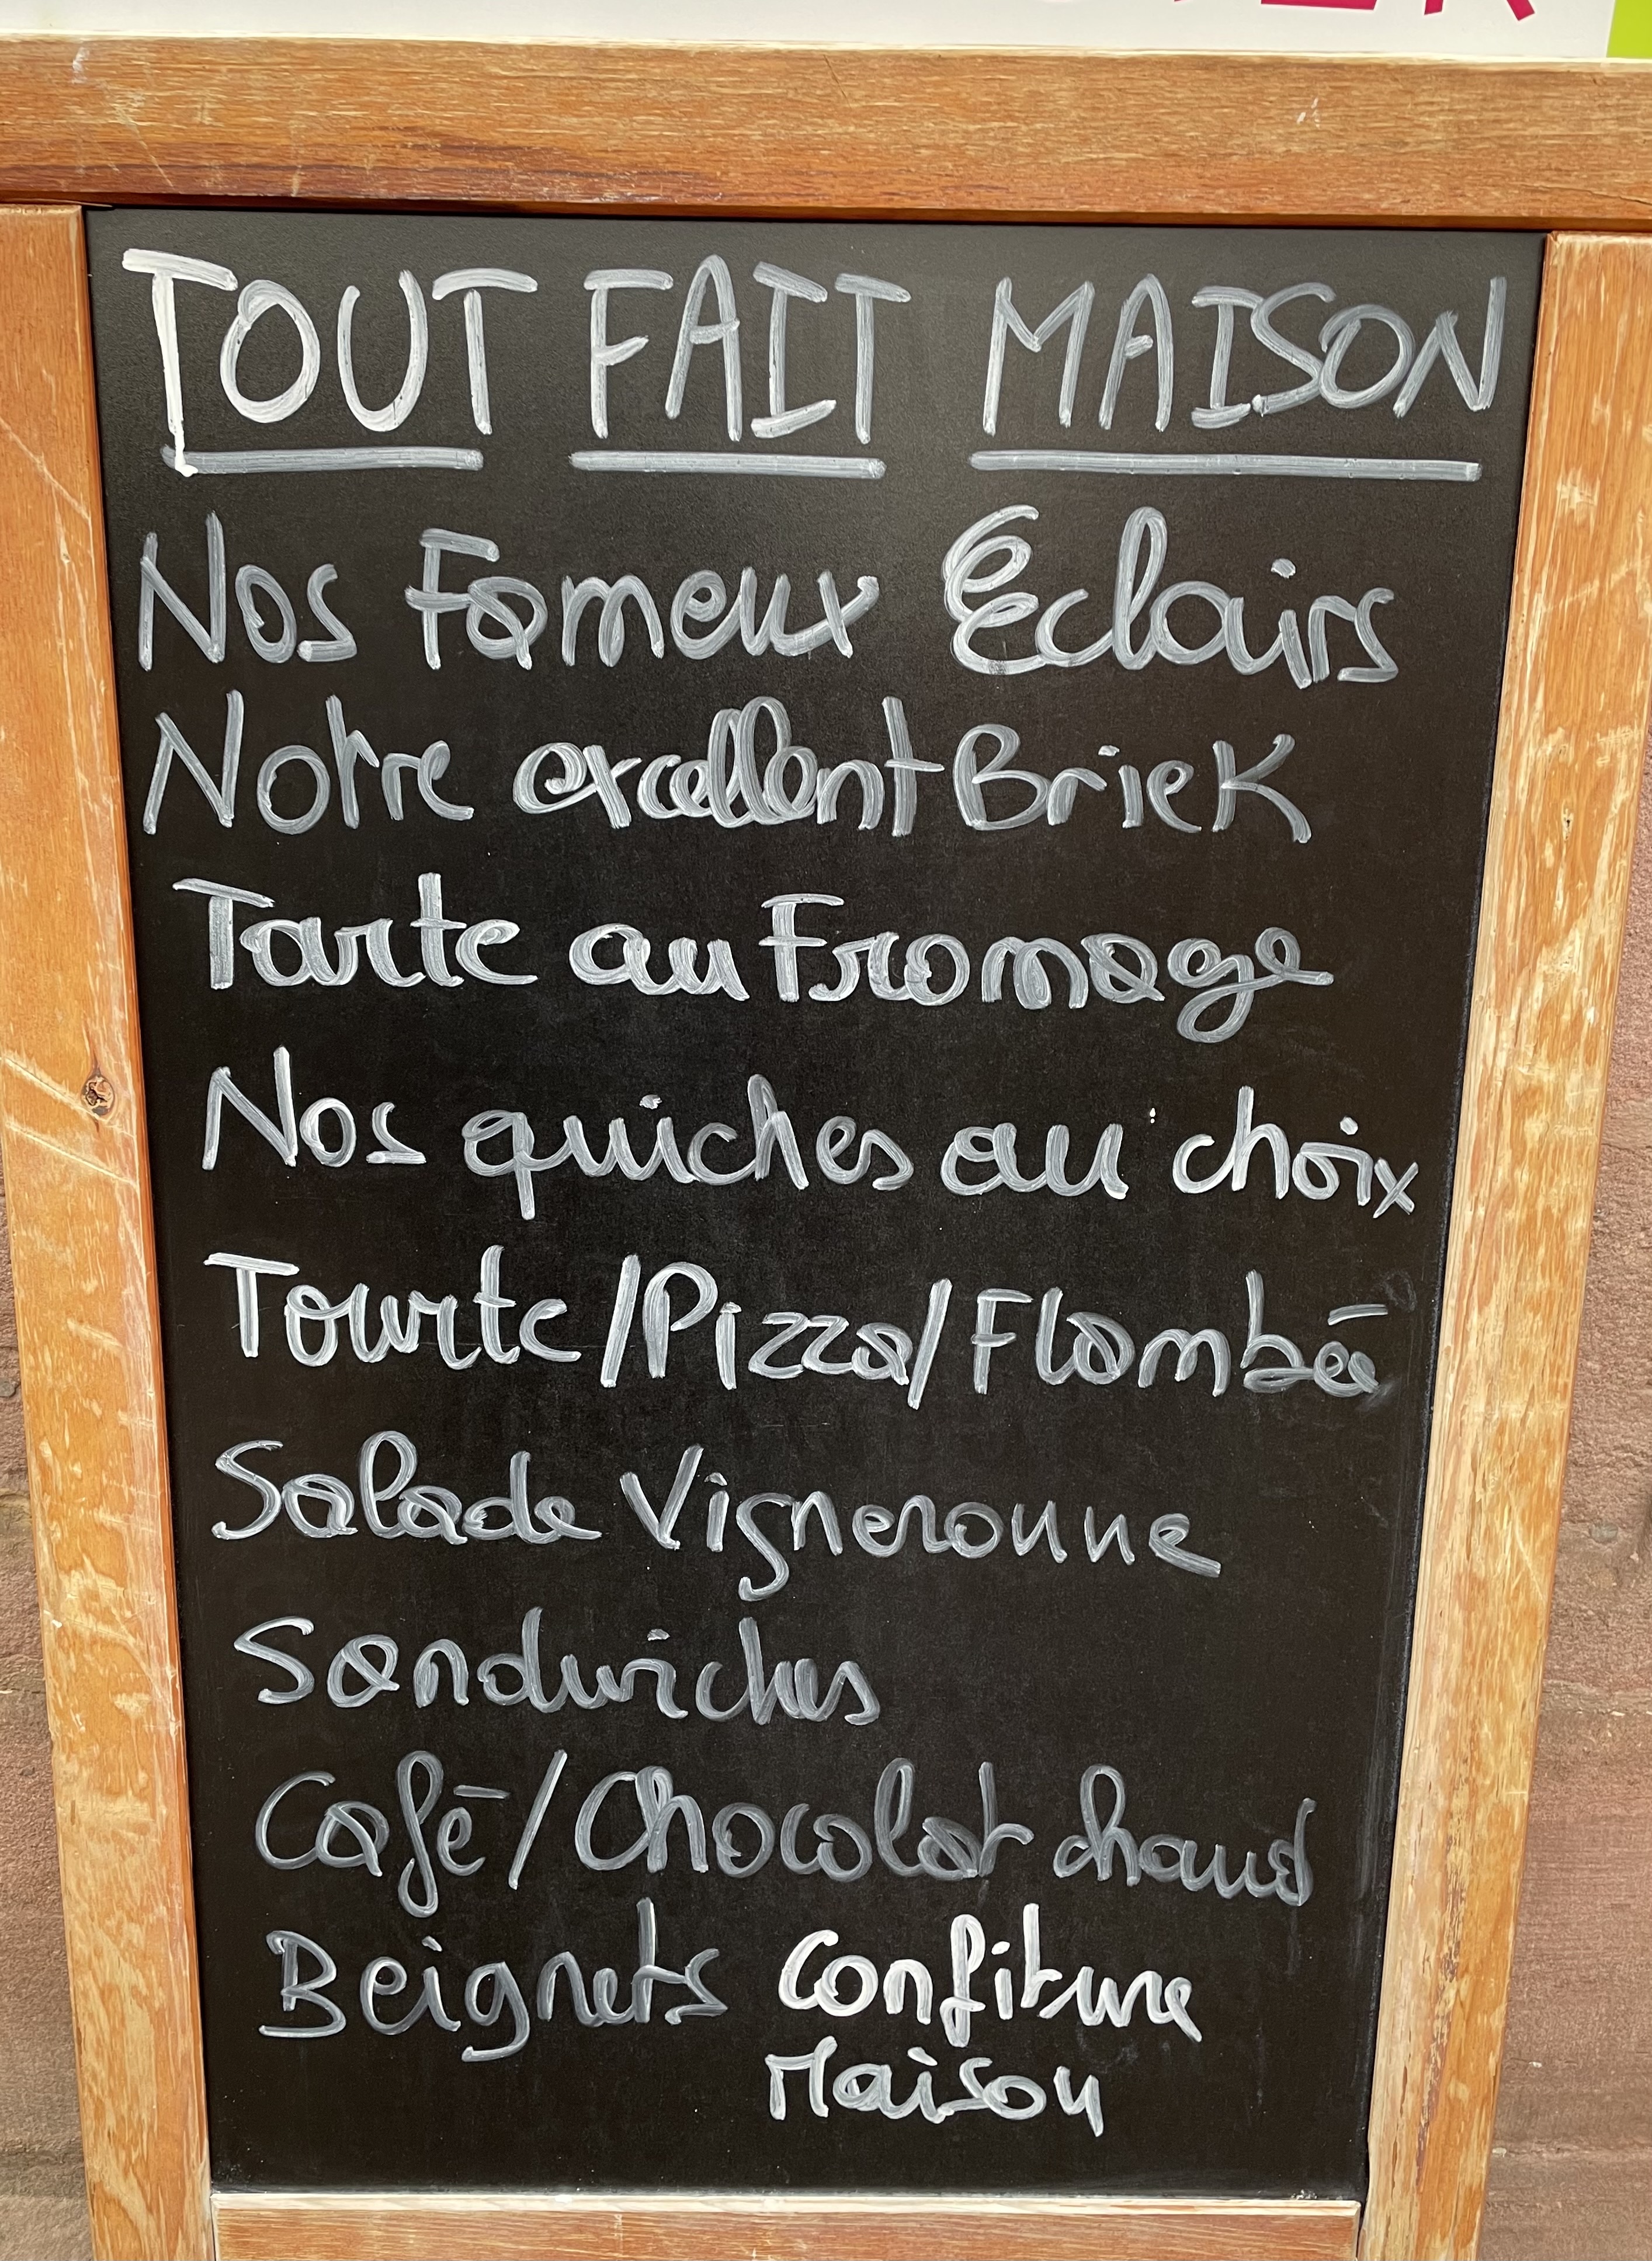 TOUT FAIT MAISON
Nos Fameux Eclairs
Notre excellent Briek
Tarte au Fromage
Nos quiches au choix
Tourte/Pizza/Flambé
Salade Vigneronne
Sandwiches
Café/Chocolat chaud
Beignets Confiture
Maison